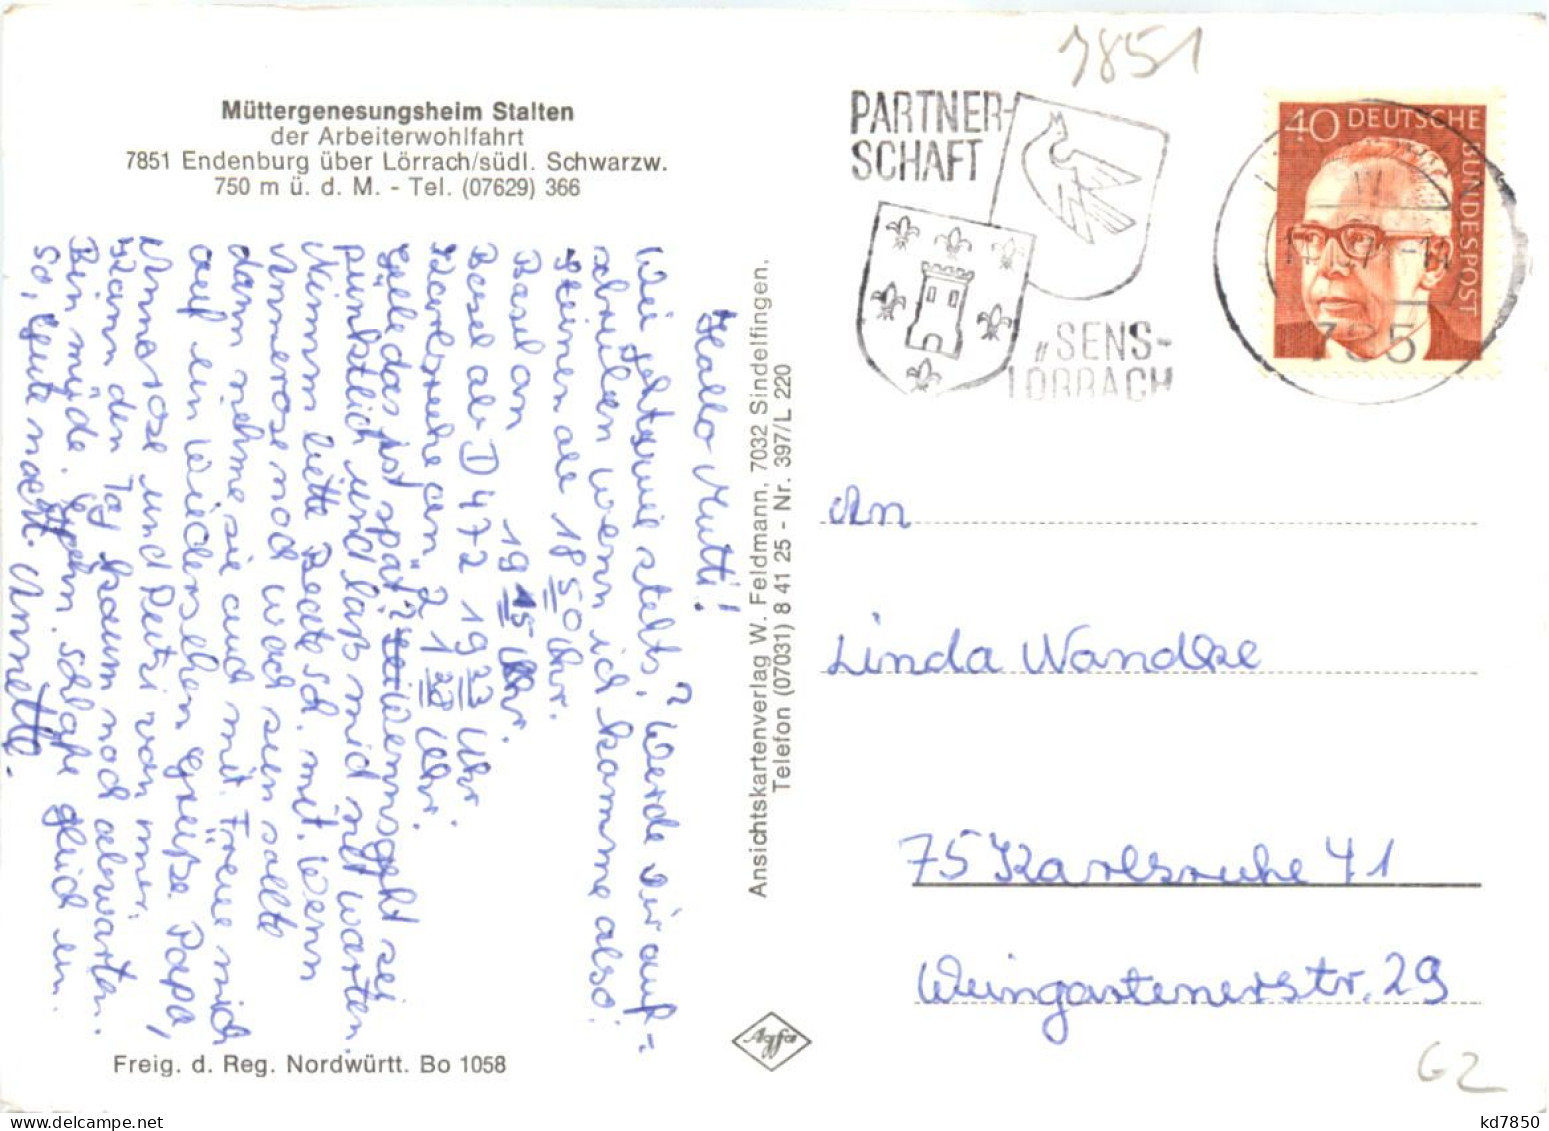 7851
Müttergenesungsheim Stalten
der Arbeiterwohlfahrt
7851 Endenburg über Lörrach/südl. Schwarzw.
750 m ü. d. M. - Tel. (07629) 366
PARTNER-
SCHAFT
"SENS-
LÖRRACH
40 DEUTSCHE
BUNDESPOST
785
Hallo Mutti!
Wie stehts? Werde dir auf-
schreiben wenn ich komme also:
Steinen ab 18 50 Uhr.
Basel an 19 15 Uhr.
Basel ab D 472 19 23 Uhr.
Karlsruhe an 21 22 Uhr.
Gelle das ist spät? Wenns geht sei
pünktlich und laß mich nicht warten.
Nimm bitte Beate sch. mit. Wenn
Annerose noch wach sein sollte
dann nehme sie auch mit. Freue mich
auf ein Wiedersehen Grüße Papa,
Annerose und Peutzi von mir.
Kann den Tag kaum noch abwarten.
Bin müde. schlafe gleich ein.
So, Gute nacht. Annette.
Ansichtskartenverlag W. Feldmann, 7032 Sindelfingen,
Telefon (07031) 8 41 25 - Nr. 397/L 220
An
Linda Wandke
75 Karlsruhe 41
Weingartenerstr. 29
Agfa
Freig. d. Reg. Nordwürtt. Bo 1058
G2
kd7850